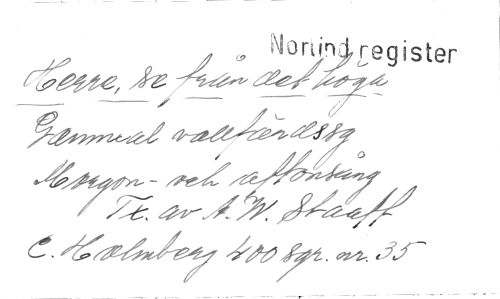 Norlind register
Herre, se från det höga
Gammal vallfärdssg
Morgon- och aftonsång
Tx. av A. W. Staaff
C. Holmberg 400 sgr. nr. 35